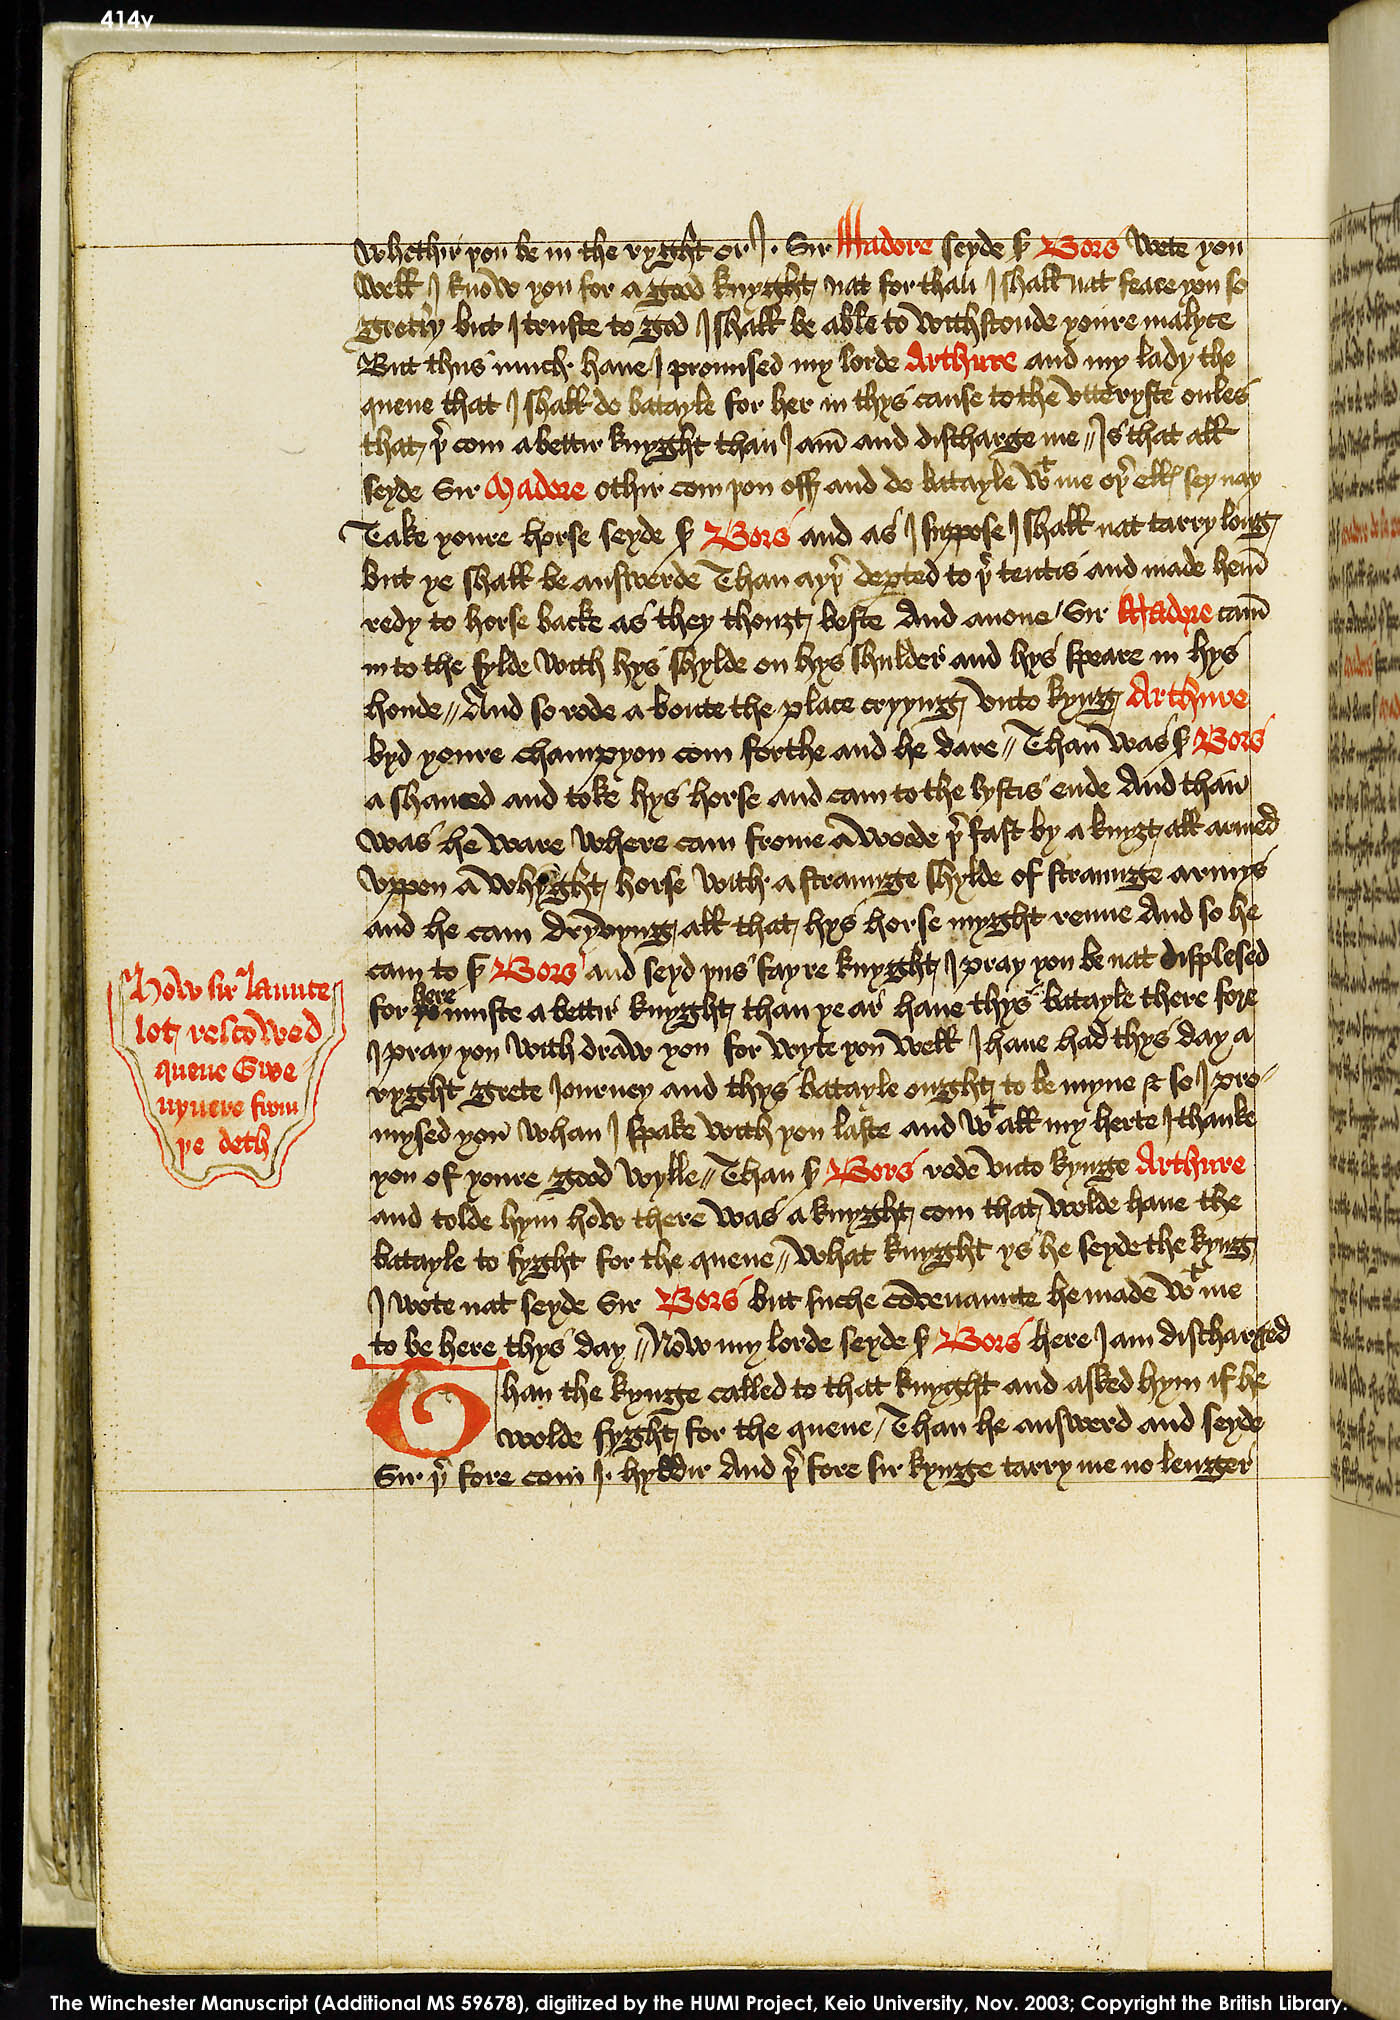 414v
Whethir you be in the ryght or I. Sir Madore seyde sr Bors Wete you
Well I know you for a good knyght nat for than I shall nat feare you so
gretly but I truste to god I shall be able to Withstonde youre malyce
But thus much haue I promysed my lorde Arthure and my lady the
quene that I shall do batayle for her in thys cause to the vtteryste onles
that þr com a bettir knyght than I am and discharge me // Is that all
seyde Sir Madore othir com you off and do batayle wt me oþr ellꝭ sey nay
Take youre horse seyde sr Bors and as I suppose I shall nat tarry long
but ye shall be answerde Than ayþr depted to þr tentis and made hem
redy to horse backe as they thouȝt beste And anone / Sir Madore cam
in to the fylde With hys shylde on hys shulder and hys speare in hys
honde // And so rode a boute the place cryyng vnto kyng Arthure
byd youre champyon com forthe and he dare // Than Was sr Bors
a shamed and toke hys horse and cam to the lystis ende And than
Was he Ware Where cam frome a Woode þr fast by a knyȝt all armed
vppon a Whyght horse With a straunge shylde of straunge armys
and he cam dryvyng all that hys horse myght renne And so he
cam to sr Bors and seyd þus fayre knyght I pray you be nat displesed
for here muste a bettir knyght than ye ar haue thys batayle there fore
I pray you With draw you for Wyte you Well I haue had thys day a
ryght grete Iourney and thys batayle ought to be myne & so I pro-
mysed you Whan I spake With you laste and wt all my herte I thanke
you of youre good Wylle // Than sr Bors rode vnto kynge Arthure
and tolde hym how there Was a knyght com that Wolde haue the
batayle to fyght for the quene // What knyght ys he seyde the kyng
I Wote nat seyde Sir Bors but suche covenaunte he made wt me
to be here thys day // Now my lorde seyde sr Bors here I am discharged
Than the kynge called to that knyght and asked hym if he
Wolde fyght for the quene / Than he answerd and seyde
Sir þr fore com I. hyddir And þr fore sir kynge tarry me no lenger
How sir Launce
lot rescowed
quene Gwe
nyuere from
þe deth
The Winchester Manuscript (Additional MS 59678), digitized by the HUMI Project, Keio University, Nov. 2003; Copyright the British Library.